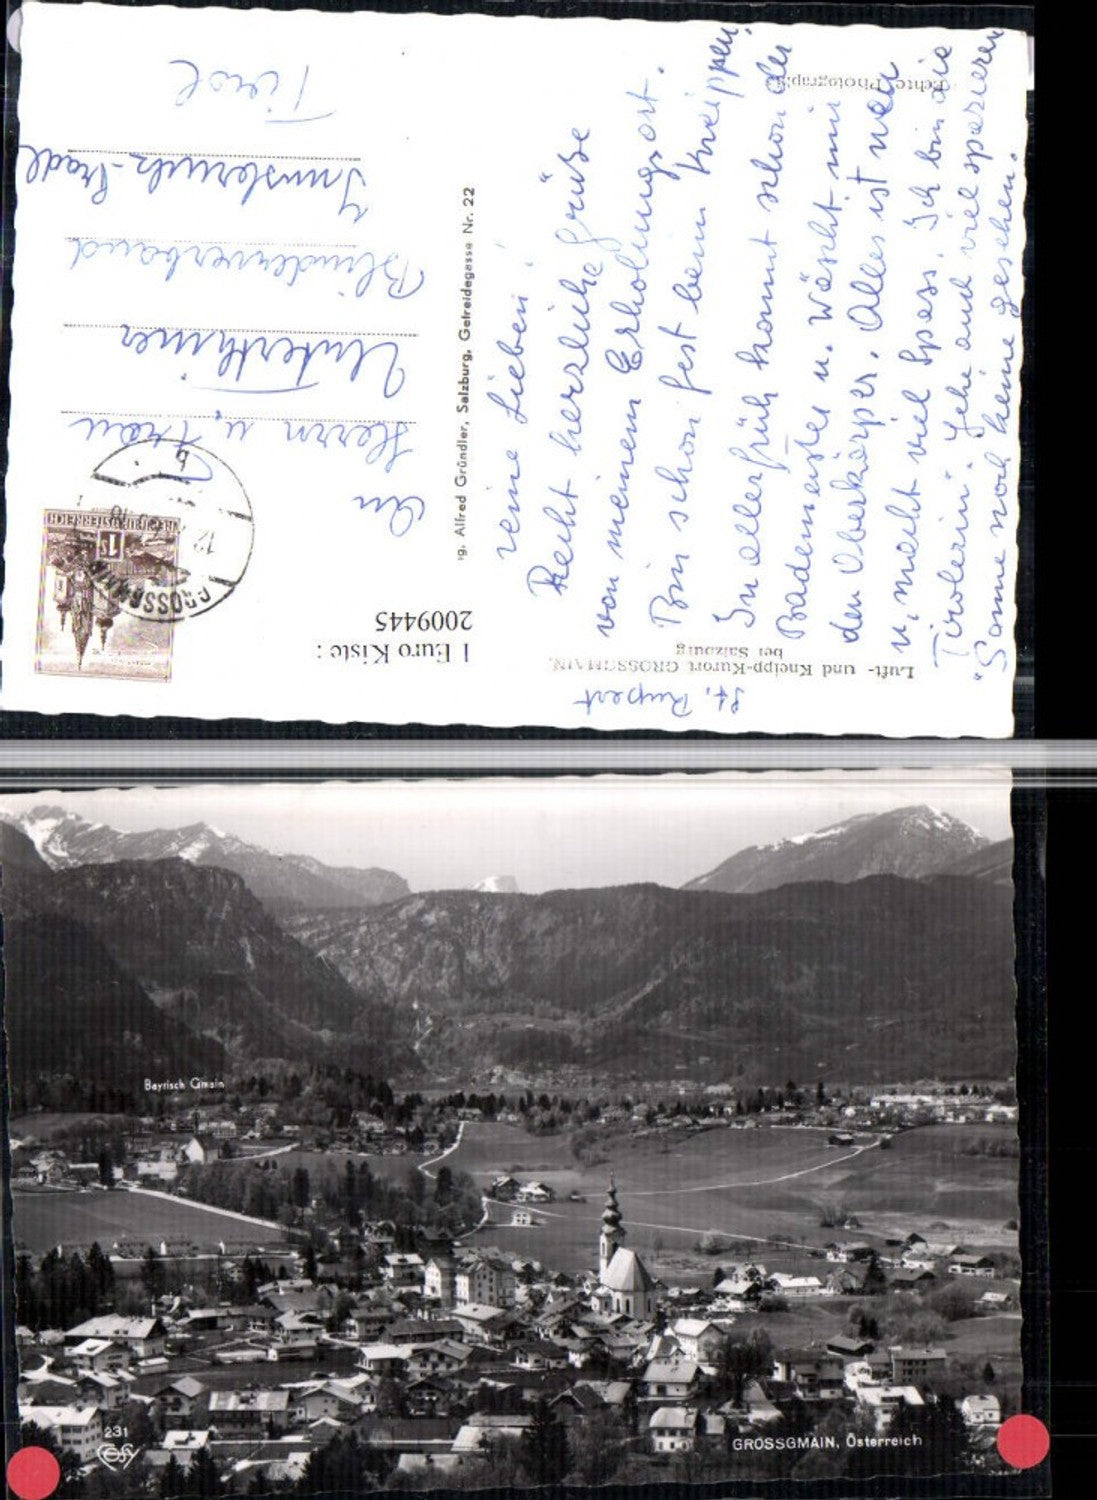 Luft- und Kneipp-Kurort GROSSGMAIN,
bei Salzburg
Echte Photographie
St. Rupert
Meine Lieben!
Recht herzliche Grüße
von meinem Erholungsort.
Bin schon fest beim Kneippen,
In aller früh kommt schon der
Bademeister u. wäscht mir
den Oberkörper. Alles ist neu
u. macht viel Spass. Ich bin die
"Tirolerin". Gehe auch viel spazieren
Sonne noch keine gesehen.
1 Euro Kiste :
2009445
ng. Alfred Gründler, Salzburg, Getreidegasse Nr. 22
REPUBLIK ÖSTERREICH
1S
GROSSGMAIN
An
Herrn u. Frau
Blindenverband
Innsbruck-Pradl
Tirol
Bayrisch Gmain
231
GROSSGMAIN, Österreich